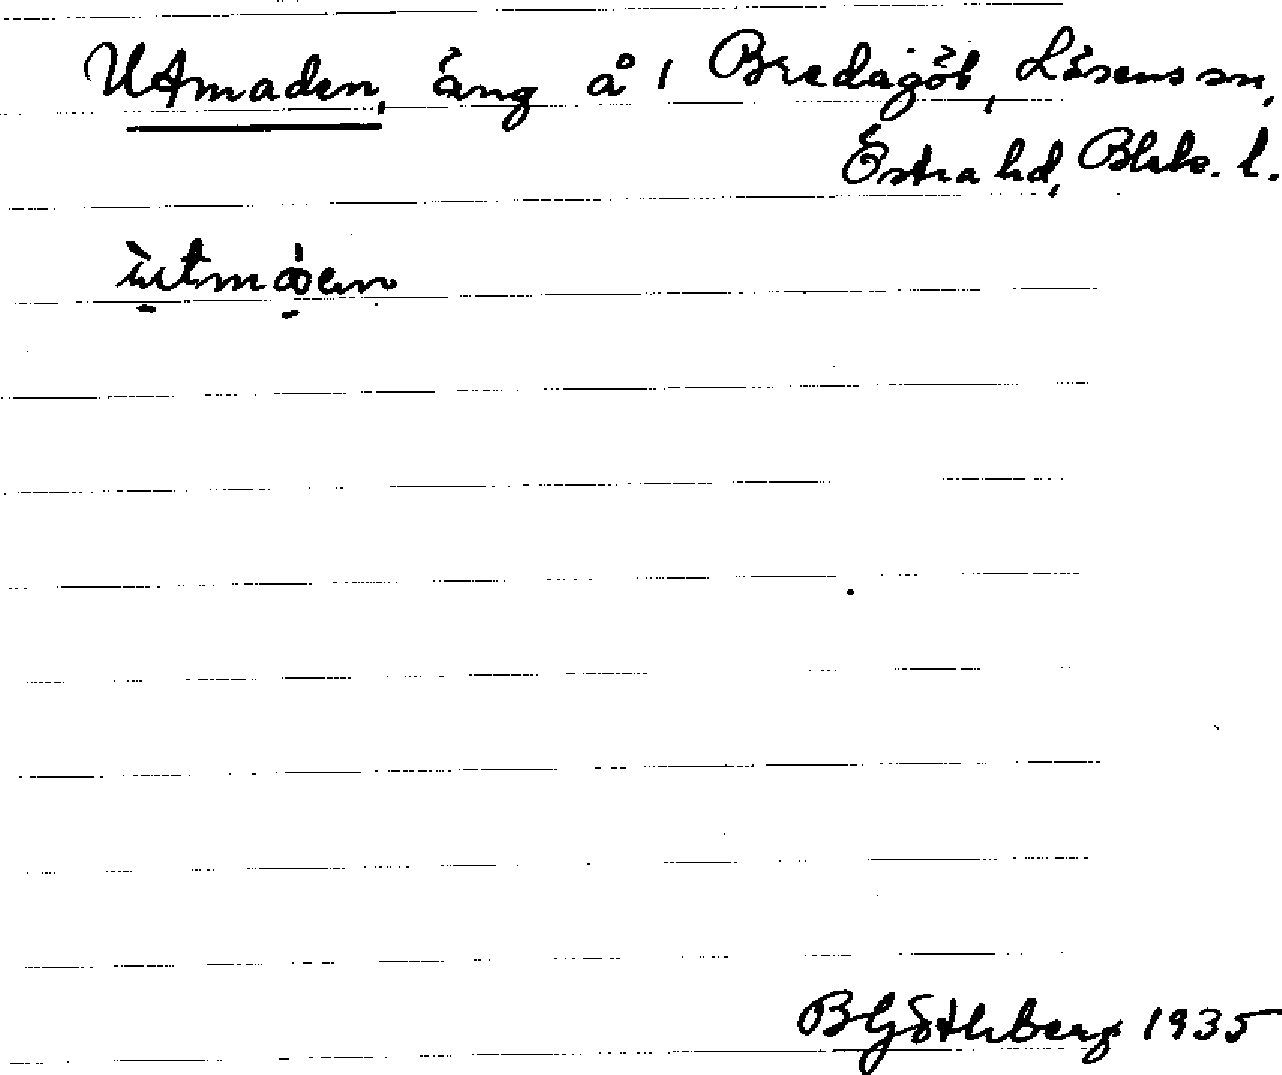 Utmaden, äng å 1 Bredagöl, Lösens sn,
Östra hd, Blek. l.
Bgöthberg 1935